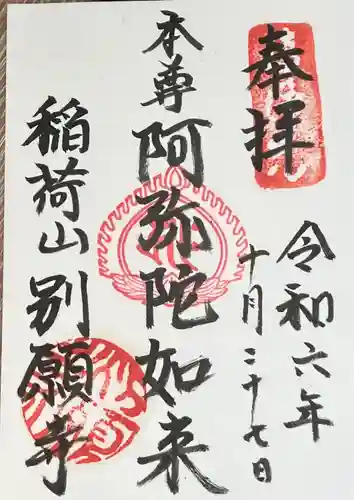 奉拝
令和六年
十月二十七日
本尊
阿弥陀如来
稲荷山別願寺